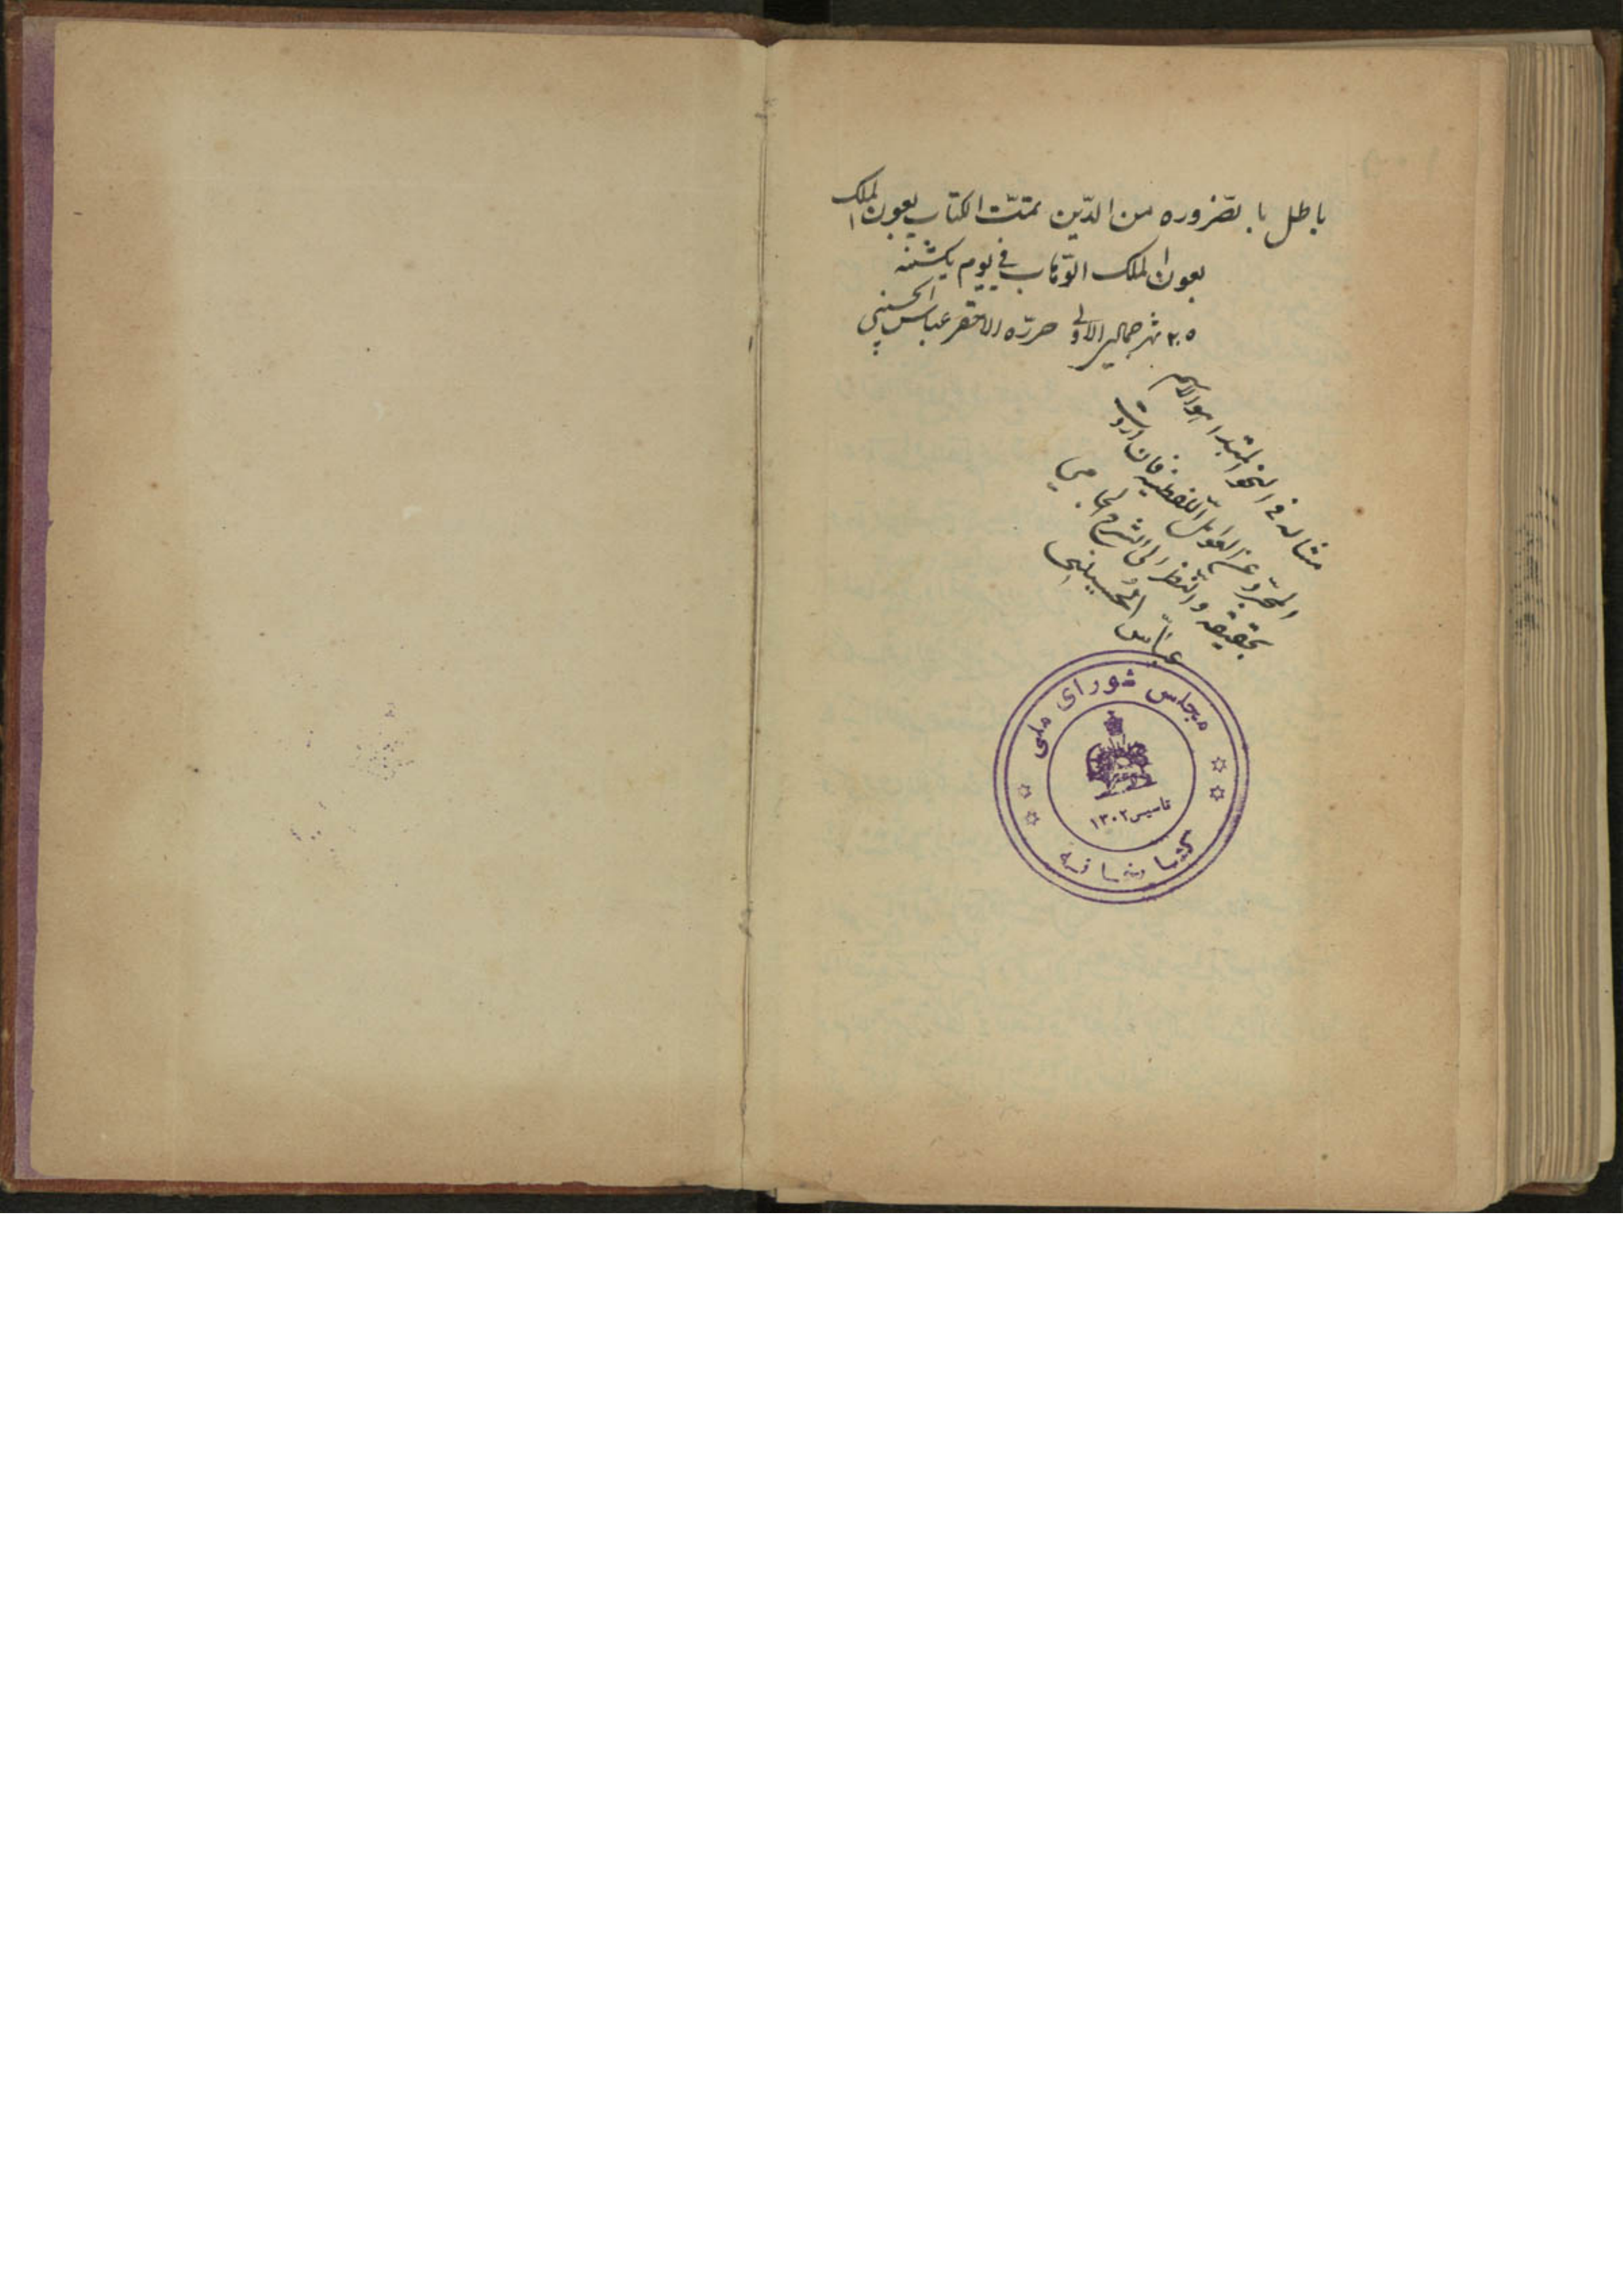 باطل بالضروره من الدّین تمتّت الکتاب بعون الملک
بعون الملک الوّهاب فی یوم یکشنبه
۲۰۵ شهر جمادی الاولی حررّه الاحقر عباس الحسینی
مثاله فی النحو المبتدا هو الاسم
المجرّد عن العوامل اللّفظیه فان اردت
تحقیقه و انّظر الی الشرح الجامی
عبّاس الحُسینی
مجلس شورای ملی
تاسیس ۱۳۰۲
کتابخانه